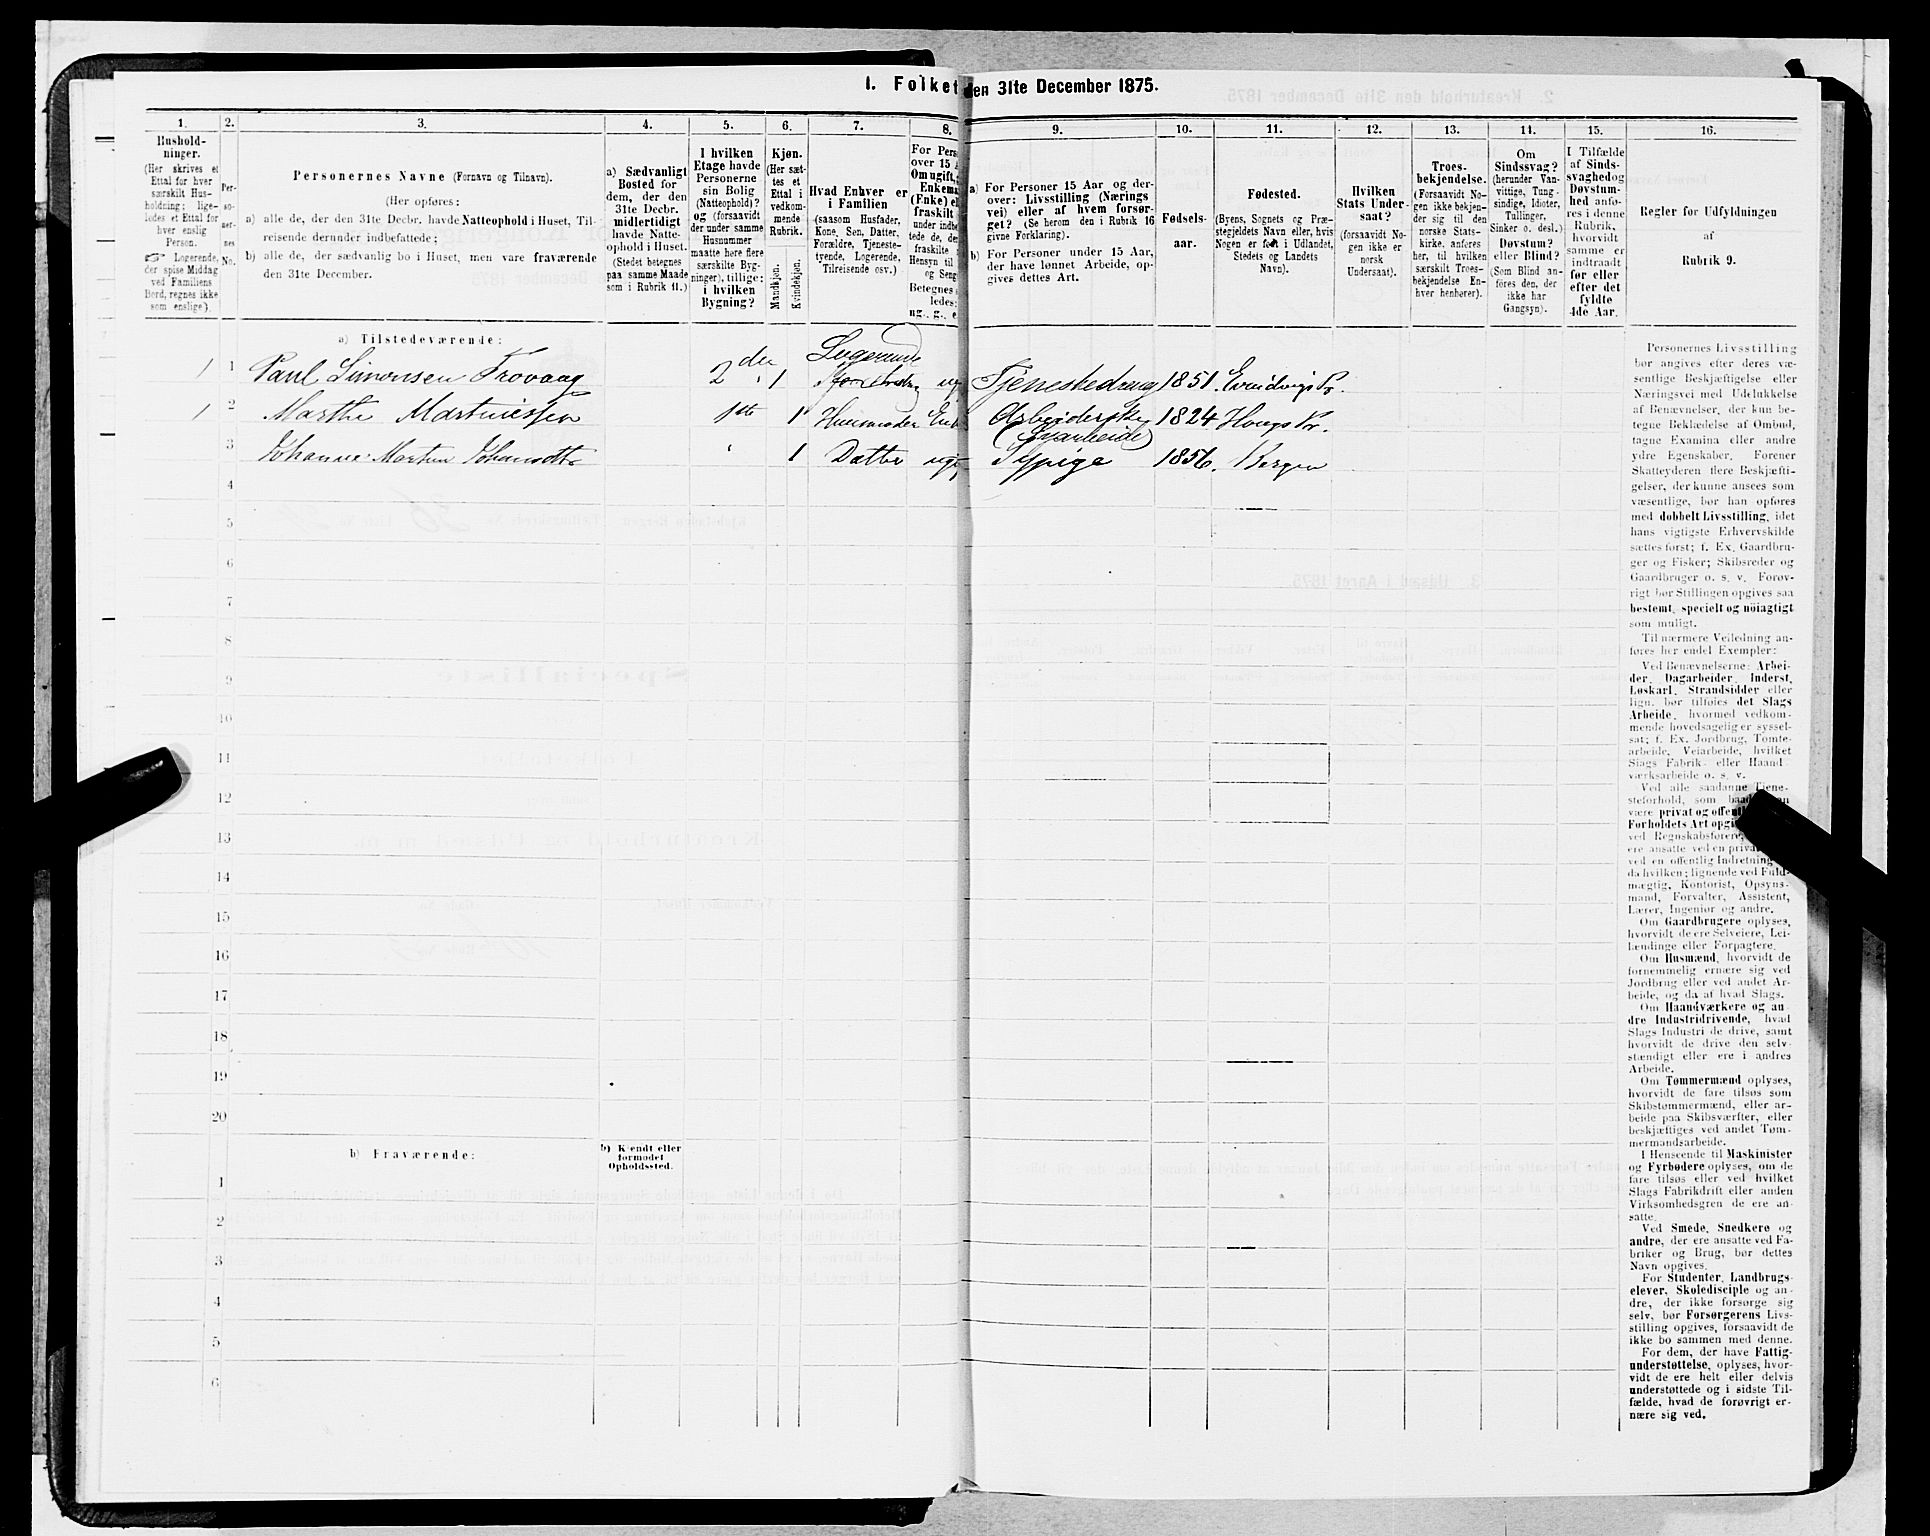 1. Folket
den 31te December 1875.
1.
2.
3.
4.
5.
6.
7.
8.
9.
10.
11.
12.
13.
14.
15.
16.
Hushold-
ninger.
(Her skrives et
Ettal for hver
særskilt Hus-
holdning; lige-
ledes et Ettal for
hver enslig
Person.
☞ Logerende,
der spise Middag
ved Familiens
Bord, regnes ikke
som enslige).
Per-
so-
ner-
nes
No.
Personernes Navne (Fornavn og Tilnavn).
(Her opføres:
a) alle de, der den 31te Decbr. havde Natteophold i Huset, Til-
reisende derunder indbefattede;
b) alle de, der sædvanlig bo i Huset, men vare fraværende
den 31te December.
a) Sædvanligt
Bosted for
dem, der den
31te Decbr.
midlertidigt
havde Natte-
ophold i Huset.
(Stedet betegnes
paa samme Maade
som i Rubrik 11.)
I hvilken
Etage havde
Personerne
sin Bolig
(Natteophold)?
og (forsaavidt
der under samme
Husnummer
maatte høre flere
særskilte Byg-
ninger), tillige:
i hvilken
Bygning?
Kjøn.
(Her sæt-
tes et
Ettal i
vedkom-
mende
Rubrik.
Mandkjøn.
Kvindekjøn.
Hvad Enhver er
i Familien
(saasom Husfader,
Kone, Søn, Datter,
Forældre, Tjeneste-
tyende, Logerende,
Tilreisende osv.)
For Pers
over 15
Om ugift,
Enkema
(Enke) el
fraskilt
under indbe
tede de, de
fraskilte
Hensyn til
og Seng
Betegnes
ledes:
ug., g., e.
a) For Personer 15 Aar og der-
over: Livsstilling (Nærings
vei) eller af hvem forsør-
get? (Se herom den i Rubrik 16
givne Forklaring).
b) For Personer under 15 Aar,
der have lønnet Arbeide, op-
gives dettes Art.
Fødsels-
aar.
Fødested.
(Byens, Sognets og Præ-
stegjeldets Navn eller, hvis
Nogen er født i Udlandet,
Stedets og Landets
Navn).
Hvilken
Stats Under-
saat?
(forsaavidt No-
gen ikke er
norsk
Undersaat).
Troes-
bekjendelse.
(Forsaavidt No-
gen ikke bekjen-
der sig til den
norske Stats-
kirke, anføres
her, til hvilken
særskilt Troes-
bekjendelse En-
hver henhører).
Om
Sindssvag?
(herunder Van-
vittige, Tung-
sindige, Idioter,
Tullinger,
Sinker o. desl.)
Døvstum?
eller Blind?
(Som Blind an-
føres den, der
ikke har
Gangsyn).
I Tilfælde
af Sinds-
svaghed og
Døvstum-
hed anfø-
res i denne
Rubrik,
hvorvidt
samme er
indtraadt
før eller
efter det
fyldte
4de Aar.
Regler for Udfyldningen
af
Rubrik 9.
a) Tilstedeværende:
1 1 Paul Simonsen Trovaag 2den 1 Logerende ug Tjenestedreng 1851. Evindvigs Pr.
1 2 Marthe Martinessen 1ste 1 Huusmoder Enk Arbeiderske 1824 Hougs Pr.
3 Johanne Martin Johansdtt " 1 Datter ug Sypige 1856. Bergen
4
5
6
7
8
9
10
11
12
13
14
15
16
17
18
19
20
b) Fraværende:
b) Kjendt eller
formodet
Opholdssted.
1
2
3
4
5
6
Personernes Livsstilling
bør angives efter deres væ-
sentlige Beskjæftigelse eller
Næringsvei med Udelukkelse
af Benævnelser, der kun be-
tegne Beklædelse af Ombud,
tagne Examina eller andre
ydre Egenskaber. Forener
Skatteyderen flere Beskjæfti-
gelser, der kunne ansees som
væsentlige, bør han opføres
med dobbelt Livsstilling, idet
hans vigtigste Erhvervskilde
sættes først; f. Ex. Gaardbru-
ger og Fisker; Skibsreder og
Gaardbruger o. s. v. Forøv-
rigt bør Stillingen opgives saa
bestemt, specielt og nøiagtigt
som muligt.
Til nærmere Veiledning an-
føres her endel Exempler:
Ved Benævnelserne: Arbei-
der, Dagarbeider, Inderst,
Løskarl, Strandsidder eller
lign. bør tilføies det Slags
Arbeide, hvormed vedkom-
mende hovedsagelig er syssel-
sat; f. Ex. Jordbrug, Tomte-
arbeide, Veiarbeide, hvilket
Slags Fabrik- eller Haand
værksarbeide o. s. v.
Ved alle saadanne Tjene-
steforhold, som baade
være privat og offent
Forholdets Art opgi
ved Regnskabsførere,
ere ansatte ved en privat
ved en offentlig Indretning
da hvilken; lignende ved Fuld-
mægtig, Kontorist, Opsyns-
mand, Forvalter, Assistent,
Lærer, Ingeniør og andre.
Om Gaardbrugere oplyses,
hvorvidt de ere Selveiere, Lei-
lændinge eller Forpagtere.
Om Husmænd, hvorvidt de
fornemmelig ernære sig ved
Jordbrug eller ved andet Ar-
beide, og da af hvad Slags.
Om Haandværkere og an
dre Industridrivende, hvad
Slags Industri de drive, samt
hvorvidt de drive den selv-
stændigt eller ere i andres
Arbeide.
Om Tømmermænd oplyses,
hvorvidt de fare tilsøs som
Skibstømmermænd, eller ar-
beide paa Skibsværfter, eller
beskjæftiges ved andet Tøm-
mermandsarbeide.
I Henseende til Maskinister
og Fyrbødere oplyses, om de
fare tilsøs eller ved hvilket
Slags Fabrikdrift eller anden
Virksomhedsgren de ere an-
satte.
Ved Smede, Snedkere og
andre, der ere ansatte ved Fa-
briker og Brug, bør dettes
Navn opgives.
For Studenter, Landbrugs-
elever, Skoledisciple og an-
dre, der ikke forsørge sig
selv, bør Forsørgerens Livs-
stilling opgives, forsaavidt de
ikke bo sammen med denne.
For dem, der have Fattig-
understøttelse, oplyses, hvor-
vidt de ere helt eller delvis
understøttede og i sidste Til-
fælde, hvad de forøvrigt er-
nære sig ved.